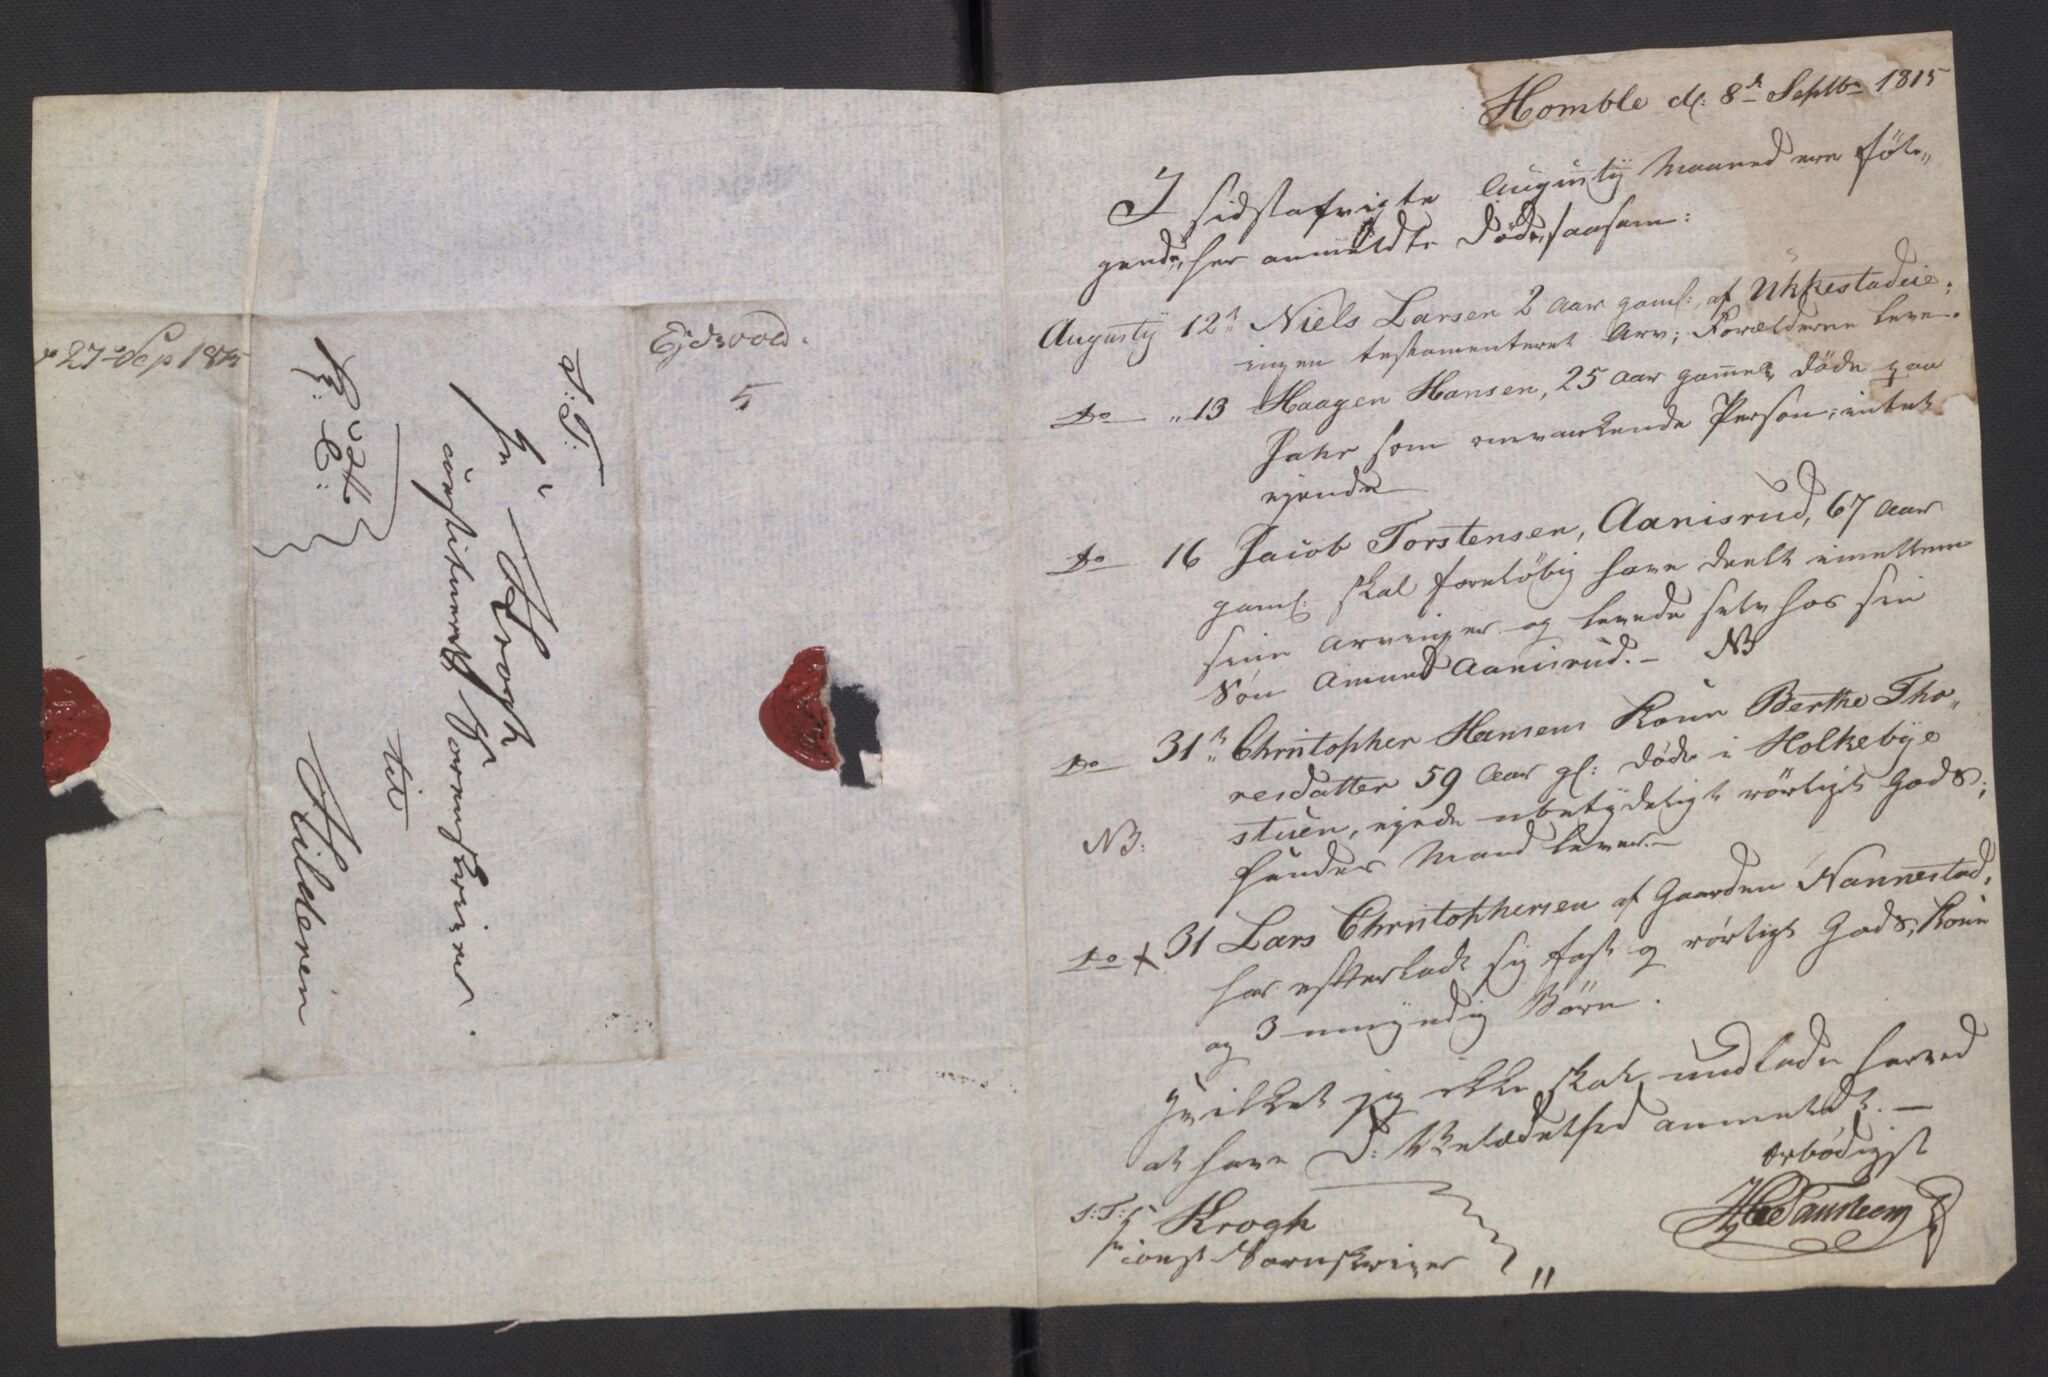 Homble d: 8de Septbr 1815
I sidstafvigte Augusty Maaned ere föl„
gende, her anmeldte Döde, saasom:
Augusty 12te Niels Larsen 2 aar gaml:, af Ukkestadeie;
ingen testamenteret Arv; Forældrene leve.
Do „13 Haagen Hansen, 25 aar gammel, döde paa
som omvankende Person; intet
ejende
Do 16 Jacob Torstensen, Aanisrud, 67 aar
gaml: skal foreløbig have deelt imellem
sine arvinger og levede selv hos sin
Sön Amund Aanisrud. – NB
Do 31te Christopher Hansens Kone Berthe Tho„
resdatter 59 Aar gl: döde i Holkebye
stuen, ejede ubetydeligt rörligt Gods;
NB: hendes Mand lever. –
Do + 31 Lars Christophersen af Gaarden Nannestad,
har efterladt sig fast og rörligt Gods, Kone
og 3 umyndig Börn.
Hvilket jeg ikke skal undlade herved
at have D: Velædelhed anmeldt. –
Ærbödigst
S: T:
Hr Krogh
const Sorenskriver
Ejdsvold.
5
S: T:
Hr Krogh
constitueret Sorenskriver
til
Kildenen
27 Sep 1815